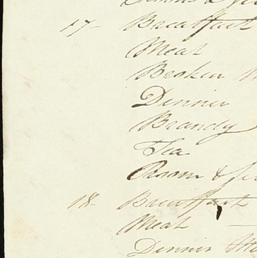 17 Breakfast
Meal
Broken
Dinner
Brandy
Tea
Room &
18 Breakfast
Meal
Dinner